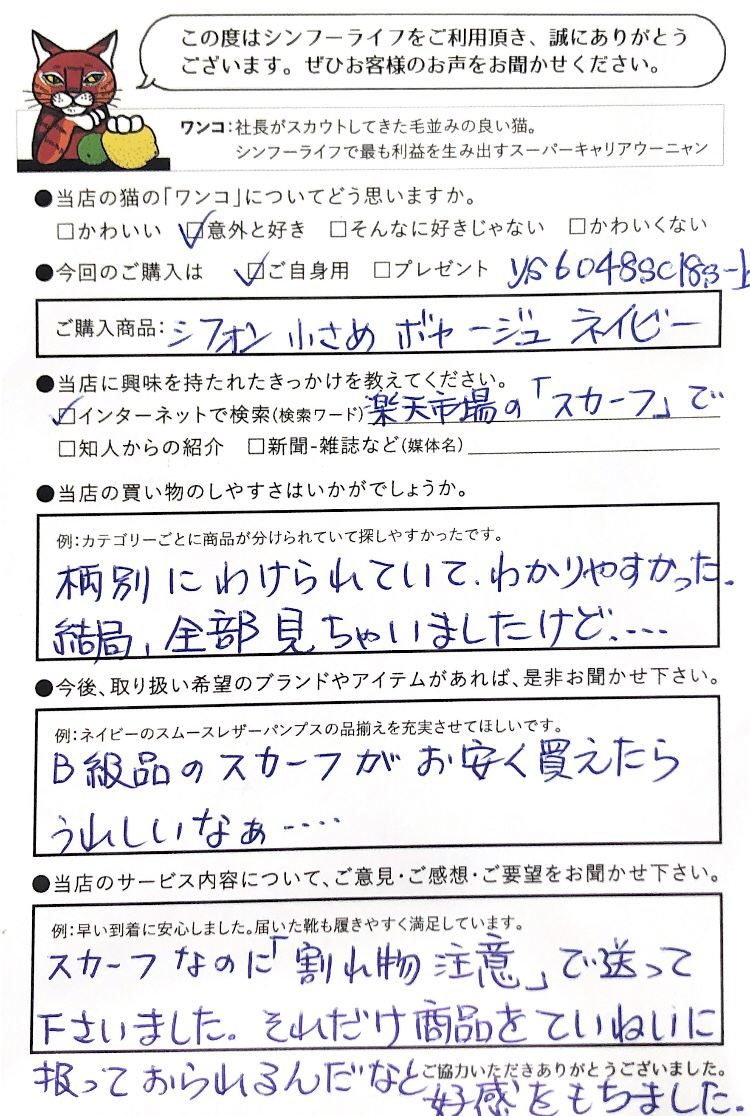 この度はシンフーライフをご利用頂き、誠にありがとう
ございます。ぜひお客様のお声をお聞かせください。
ワンコ:社長がスカウトしてきた毛並みの良い猫。
シンフーライフで最も利益を生み出すスーパーキャリアウーニャン
●当店の猫の「ワンコ」についてどう思いますか。
□かわいい ☑意外と好き □そんなに好きじゃない □かわいくない
●今回のご購入は ☑ご自身用 □プレゼント
ご購入商品: シフォン 小さめ ボヤージュ ネイビー
●当店に興味を持たれたきっかけを教えてください。
☑インターネットで検索(検索ワード) 楽天市場の「スカーフ」で
□知人からの紹介 □新聞-雑誌など(媒体名)
●当店の買い物のしやすさはいかがでしょうか。
例:カテゴリーごとに商品が分けられていて探しやすかったです。
柄別にわけられていて、わかりやすかった。
結局、全部見ちゃいましたけど....
●今後、取り扱い希望のブランドやアイテムがあれば、是非お聞かせ下さい。
例:ネイビーのスムースレザーパンプスの品揃えを充実させてほしいです。
B級品のスカーフがお安く買えたら
うれしいなぁ....
●当店のサービス内容について、ご意見・ご感想・ご要望をお聞かせ下さい。
例:早い到着に安心しました。届いた靴も履きやすく満足しています。
スカーフなのに「割れ物注意」で送って
下さいました。それだけ商品をていねいに
扱っておられるんだなと
ご協力いただきありがとうございました。
好感をもちました。